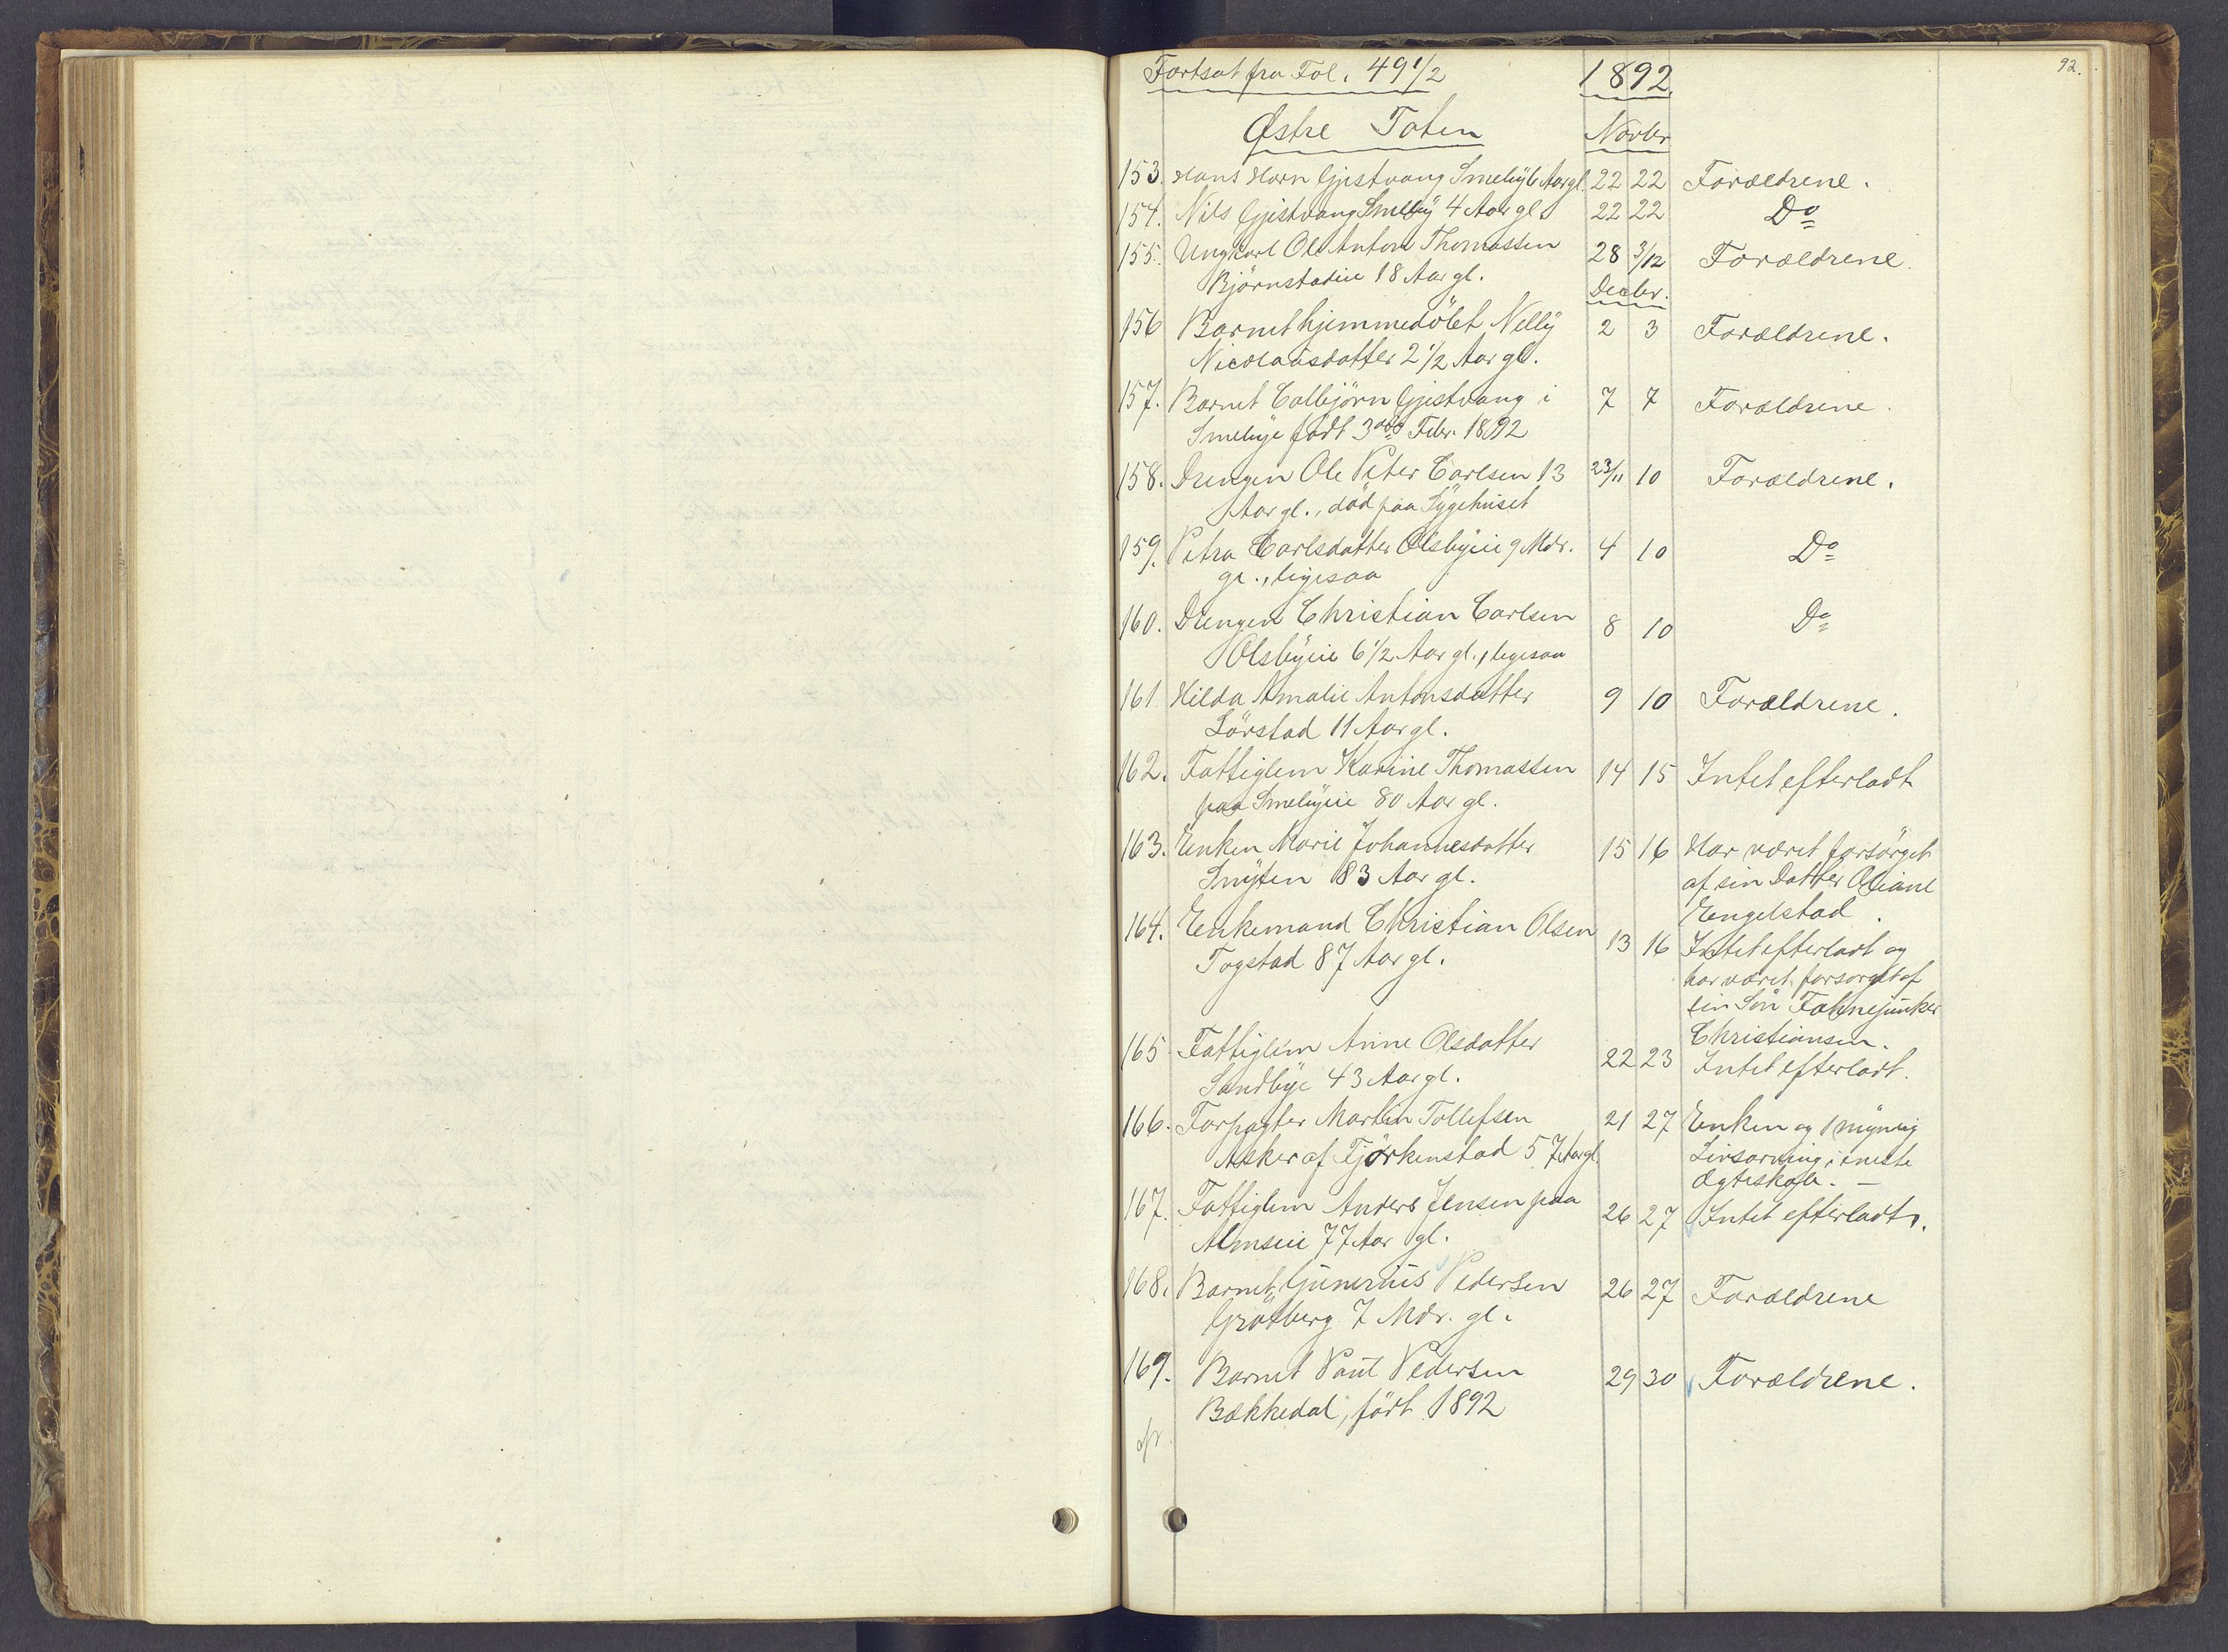 92.
Fortsat fra Fol. 49 1/2 1892.
Østre Toten Novbr
153. Hans Horn Gjestvang Smeby 6 Aar gl. 22 22 Forældrene.
154. Nils Gjestvang Smeby 4 Aar gl. 22 22 Do
155. Ungkarl Ole Anton Thomassen 28 3/12 Forældrene.
Bjørnstadeie 18 Aar gl. Decbr.
156 Barnet hjemmedøbt Nelly 2 3 Forældrene.
Nicolaisdatter 2 1/2 Aar gl.
157. Barnet Colbjørn Gjestvang i 7 7 Forældrene.
Smebye født 3die Febr. 1892
158. Drengen Ole Peter Carlsen 13 23/11 10 Forældrene.
Aar gl., død paa Sygehuset
159. Petra Carlsdatter Olsbyeie 9 Mdr. 4 10 Do
gl., ligesaa
160. Drengen Christian Carlsen 8 10 Do
Olsbyeie 6 1/2 Aar gl., ligesaa
161 Hilda Amalie Antonsdatter 9 10 Forældrene.
Lørstad 11 Aar gl.
162. Fattiglem Karine Thomassen 14 15 Intet efterladt
paa Smebyeie 80 Aar gl.
163. Enken Marie Johannesdatter 15 16 Har været forsørget
Snyten 83 Aar gl. af sin Datter Oliane
Engelstad.
164. Enkemand Christian Olsen 13 16 Intet efterladt og
Togstad 87 Aar gl. har været forsørget af
sin Søn Fahnejunker
Christiansen.
165 Fattiglem Anne Olsdatter 22 23 Intet efterladt.
Sandbye 43 Aar gl.
166. Forpagter Martin Tollefsen 21 27 Enken og 1 myndig
Asker af Fjørkenstad 57 Aar gl. Livsarving i eneste
Ægteskab. —
167. Fattiglem Anders Jensen paa 26 27 Intet efterladt.
Almseie 77 Aar gl.
168. Barnet Gunerius Pedersen 26 27 Forældrene
Gråtberg 7 Mdr. gl.
169. Barnet Paul Pedersen 29 30 Forældrene.
Bækkedal, født 1892